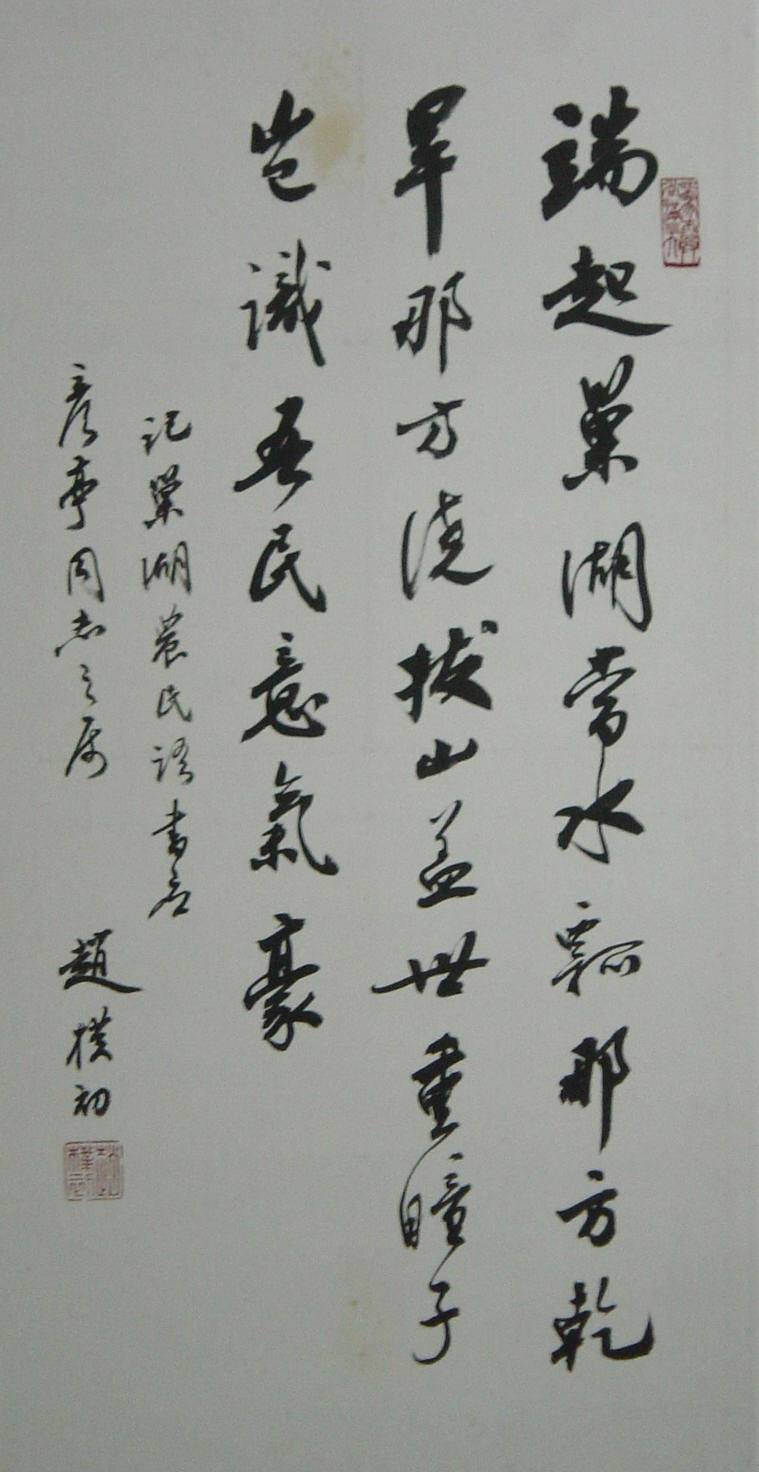 端起巢湖當水瓢那方乾
旱那方澆拔山盖世重瞳子
岂識吾民意氣豪
記巢湖農民語書应
彦亭同志之属
趙樸初